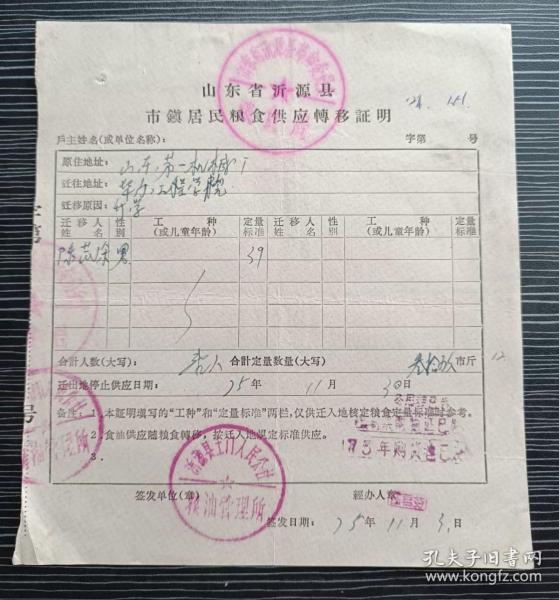 山东省沂源县
市鎮居民粮食供应轉移証明
戶主姓名(或单位名称): 字第 号
原住地址: 山东第一机械厂
迁往地址: 华东工程学院
迁移原因: 升学
迁移人姓名 性別 工种(或儿童年龄) 定量标准 迁移人姓名 性別 工种(或儿童年龄) 定量标准
男 39
合計人数(大写): 壱人 合計定量数量(大写) 市斤
迁出地停止供应日期: 75年 11月 30日
备注: 1.本証明填写的“工种”和“定量标准”两栏,仅供迁入地核定粮食定量标准时参考。
2.食油供应随粮食轉移,按迁入地規定标准供应。
3.
沂源县土门人民公社
粮油管理所
签发单位(章) 經办人章
签发日期: 75年 11月 3日
孔夫子旧书网
www.kongfz.com